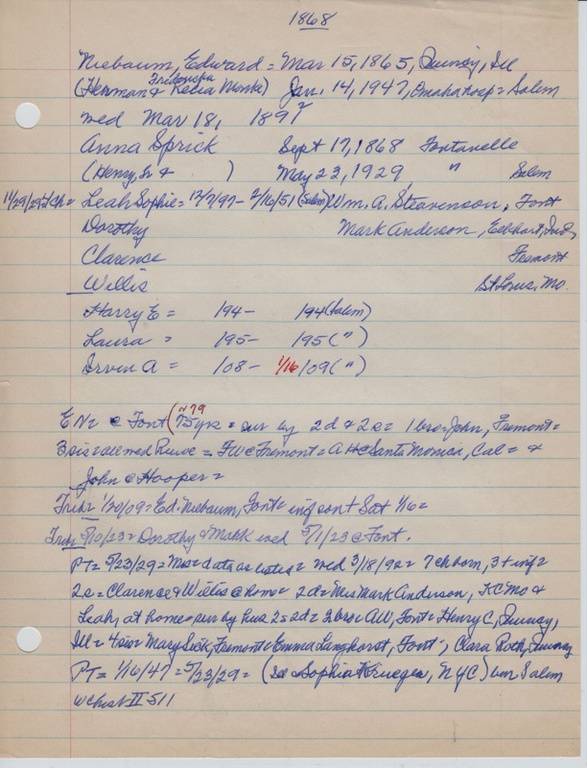 1868
Niebaum, Edward = Mar 15, 1865, Quincy, Ill
Fredericka
(Herman & Monke) Jan. 14, 1947, Omaha hosp = Salem
wed Mar 18, 1892
Anna Sprick Sept 17, 1868 Fontanelle
(Henry, Sr & ) May 23, 1929, " Salem
Ch = Leah Sophie = 12/7/97 - 2/16/51 (Salem) Wm. A. Steavenson, Font
Dorothy Mark Anderson, Elkhart, Ind.
Clarence Fremont
Willis St Louis, Mo.
Harry E = 194 - 194 (Salem)
Laura = 195 - 195 (")
Irvin A = 108 - 1/16/109 (")
79
EN = @ Font (75 yrs = sur by 2d & 2s = 1 bro = John, Fremont =
3 sis = = FW @ Fremont = A H @ Santa Monica, Cal = &
John @ Hooper =
Trib = 1/20/09 = Ed. Niebaum, Font = inf sont Sat 1/16 =
Trib 5/10/23 = Dorothy & Mark wed 5/1/23 @ Font.
PT = 5/23/29 = Mos = data as listed = wed 3/18/92 = 7 ch born, 3 + inf =
2s = Clarence & Willis @ home = 2d = Mrs Mark Anderson, KC Mo &
Leah, at home = sur by hus 2s = 2d = 3 bro = AW, Font = Henry C, Quincy,
Ill = 4 sis = Mary Sick, Fremont = Emma Langhorst, Font =, Clara Roth, Quincy
PT = 1/16/47 = 5/23/29 = ( Sophia Krueger, NYC) Salem
W chist II 511